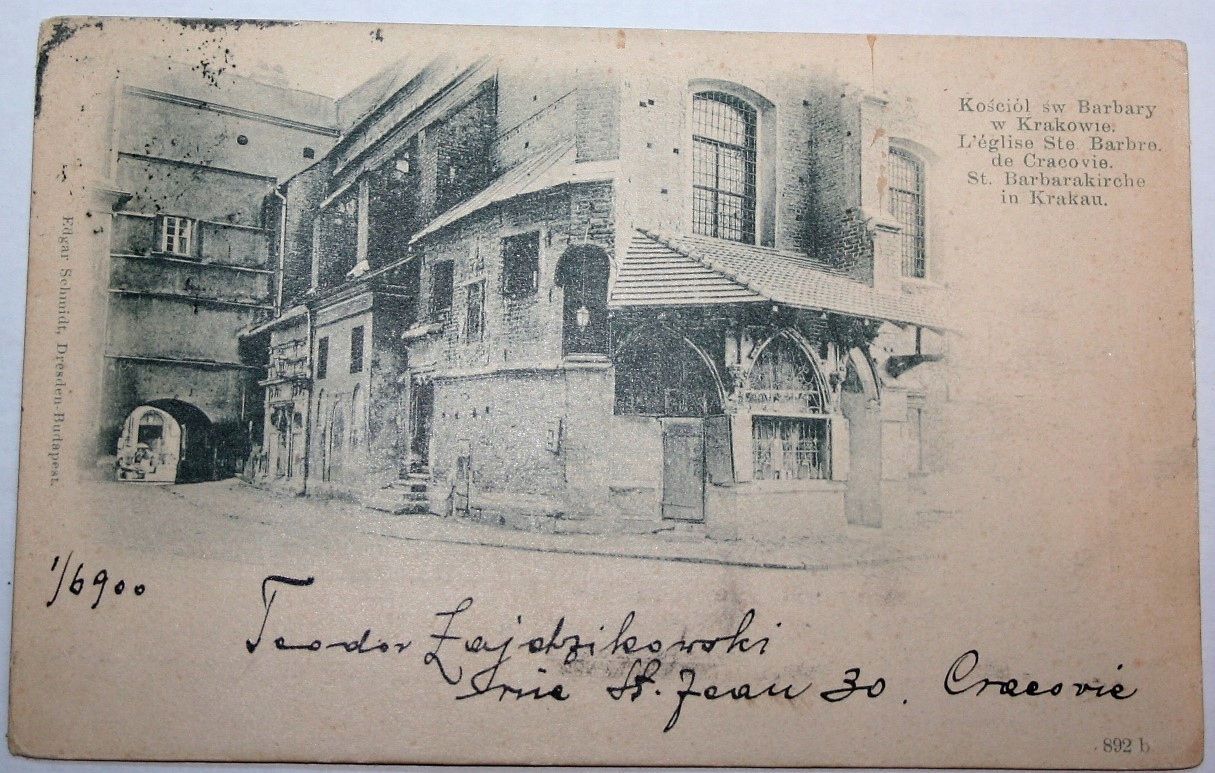 Kościół św Barbary
w Krakowie.
L'église Ste Barbre.
de Cracovie.
St. Barbarakirche
in Krakau.
Edgar Schmidt, Dresden-Budapest.
1/6 900
Teodor Zajdzikowski
rue St. Jean 30. Cracovie
892 b